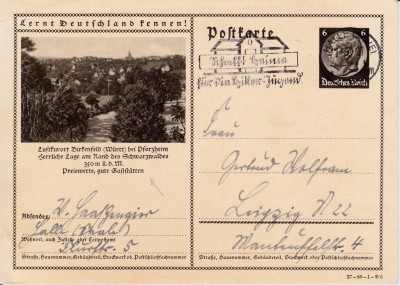 Lernt Deutschland kennen!
Postkarte
6 6
Deutsches Reich
Schafft Heime
für die Hitler-Jugend
Luftkurort Birkenfeld (Württ) bei Pforzheim
Herrliche Lage am Rand des Schwarzwaldes
350 m ü. d. M.
Preiswerte, gute Gaststätten
Absender:
Halle (Saale)
Wohnort, auch Zustell- oder Leitpostamt
5
Straße, Hausnummer, Gebäudeteil, Stockwerk oder Postschließfachnummer
Frau
Gertrud Wolfram
Leipzig N 22
Manteuffelstr. 4
Straße, Hausnummer, Gebäudeteil, Stockwerk oder Postschließfachnummer